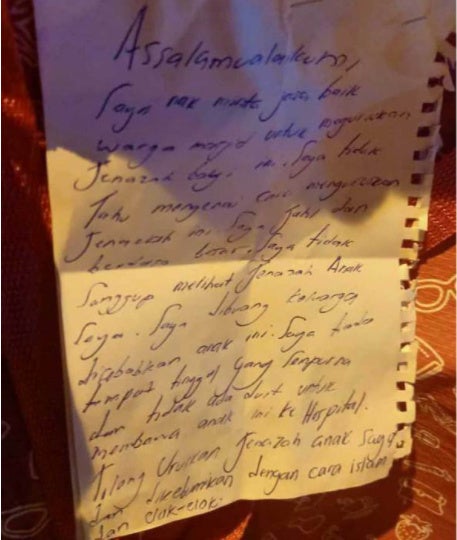 Assalamualaikum,
Saya nak minta jasa baik
warga masjid untuk menguruskan
Jenazah bayi ini. Saya tidak
Tahu mengenai cara menguruskan
Jenazah ini. Saya Jahil dan
berdosa besar. Saya tidak
Sanggup melihat Jenazah Anak
Saya. Saya dibuang keluarga
disebabkan anak ini. Saya tiada
tempat tinggal yang Sempurna
dan tidak ada duit untuk
membawa anak ini ke Hospital.
Tolong Uruskan Jenazah anak Saya
dan dikebumikan dengan cara islam
dan elok-elok.